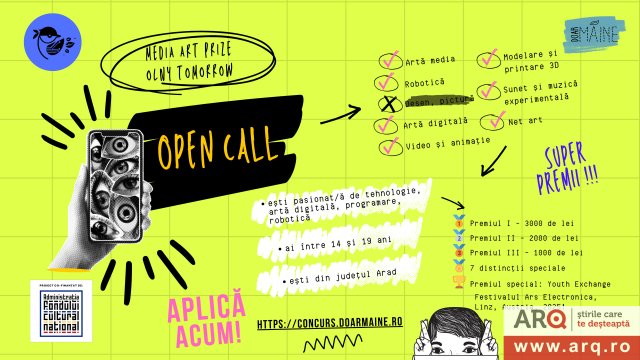 MEDIA ART PRIZE
OLNY TOMORROW
OPEN CALL
DOAR
MÂINE
Artă media
Robotică
desen, pictură
Artă digitală
Video și animație
Modelare și
printare 3D
Sunet și muzică
experimentală
Net art
SUPER
PREMII !!!
• ești pasionat/ă de tehnologie,
artă digitală, programare,
robotică
• ai între 14 și 19 ani
• ești din județul Arad
Premiul I - 3000 de lei
Premiul II - 2000 de lei
Premiul III - 1000 de lei
7 distincții speciale
Premiul special: Youth Exchange
Festivalul Ars Electronica,
Linz,
PROIECT CO-FINANȚAT DE:
Administrația
fondului
cultural
național
APLICĂ
ACUM!
HTTPS://CONCURS.DOARMAINE.RO
ARQ
știrile care
te deșteaptă
www.arq.ro